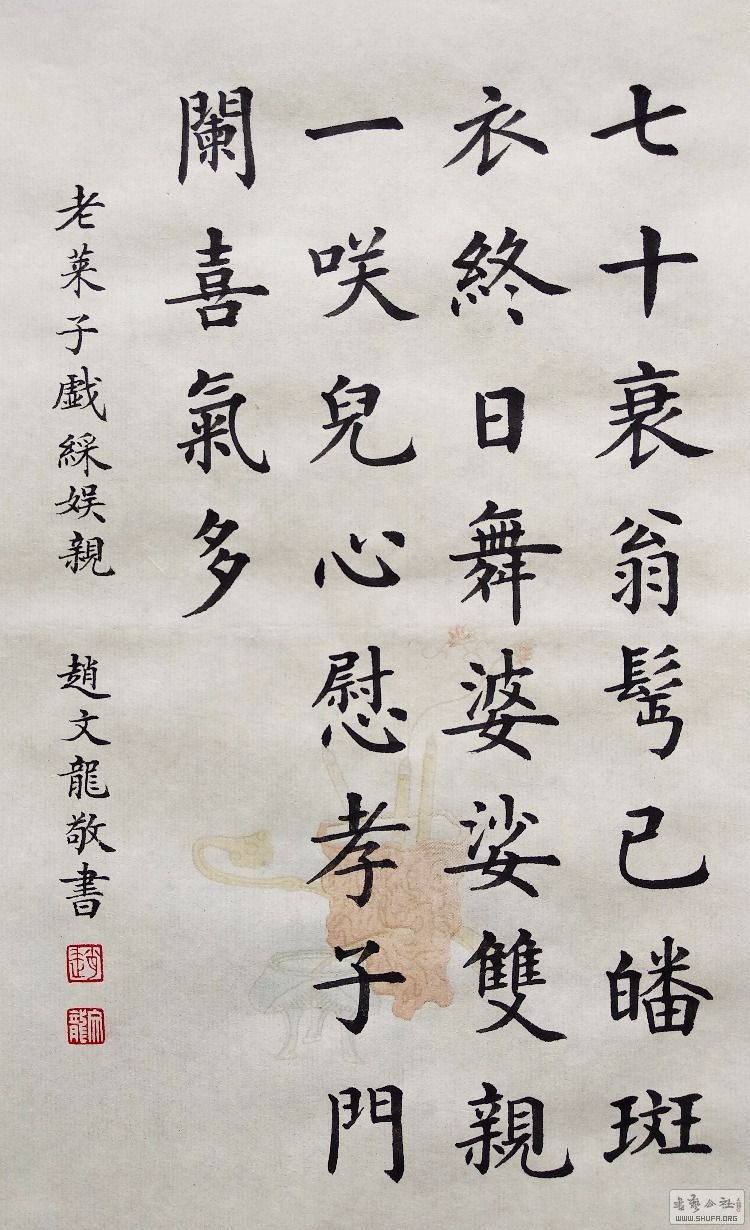 七十衰翁髩已皤斑
衣終日舞婆娑雙親
一咲兒心慰孝子門
闌喜氣多
老莱子戯綵娱親 趙文龍敬書
趙
文龍
书艺公社
WWW.SHUFA.ORG